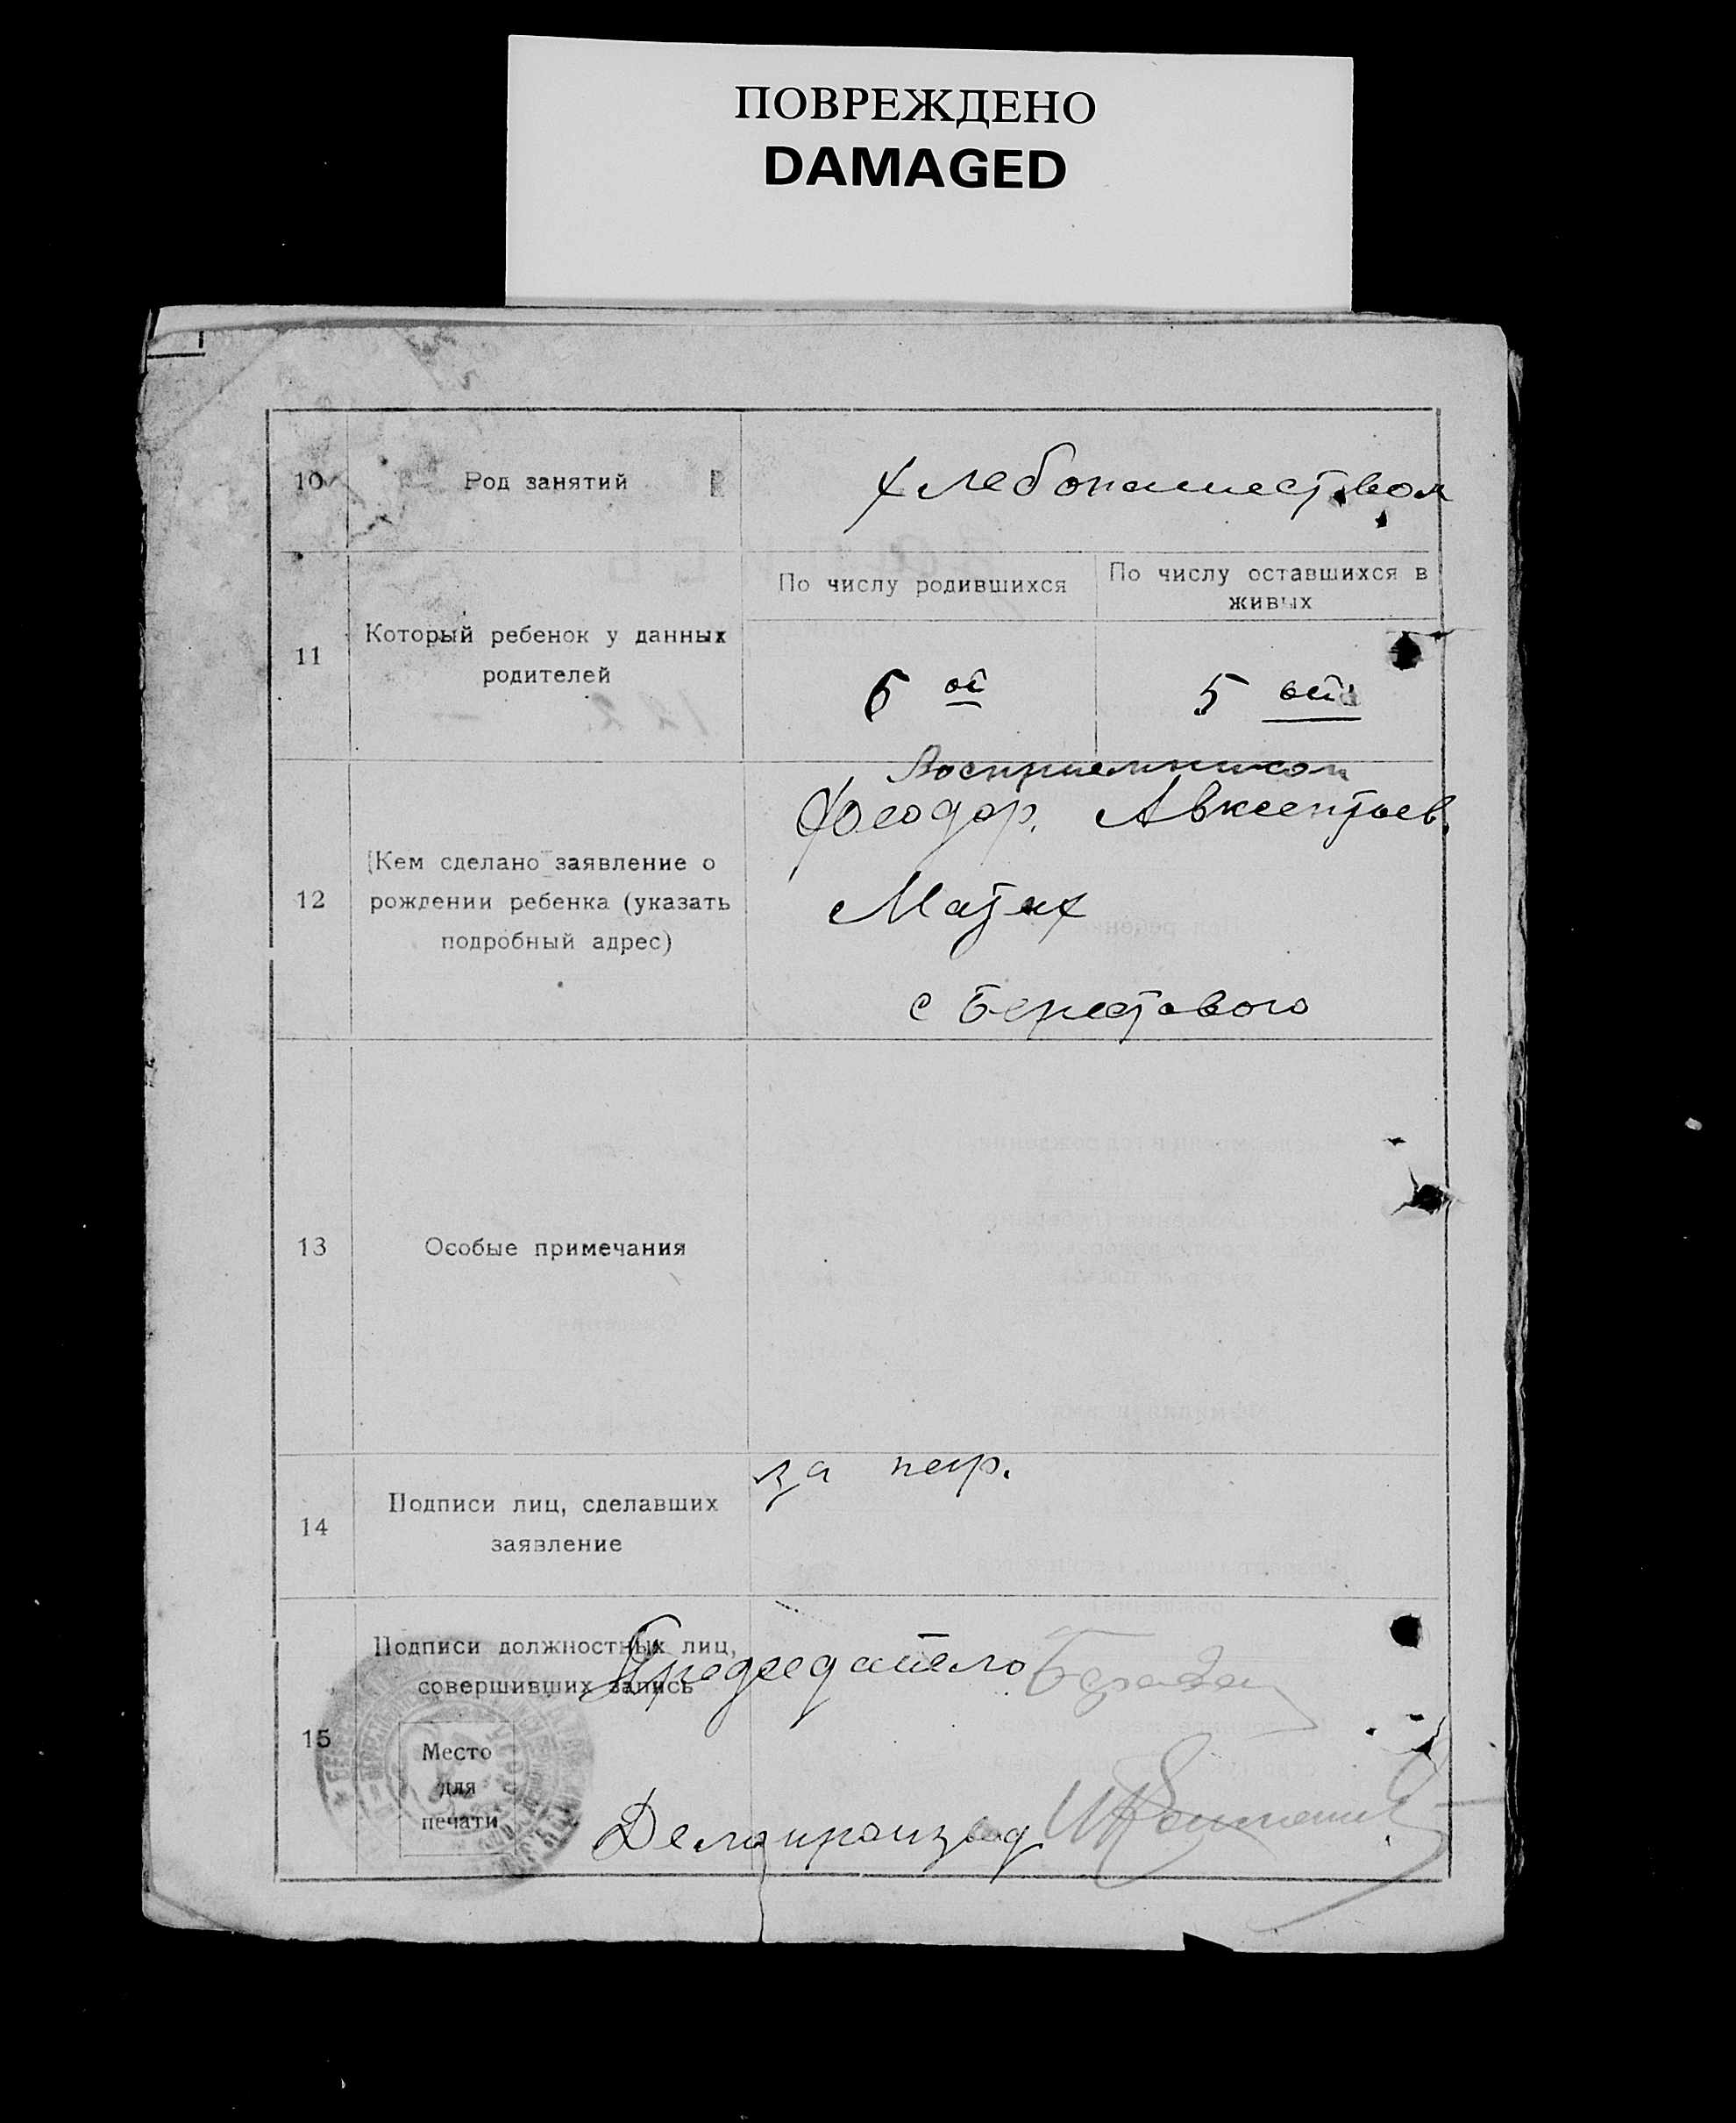 ПОВРЕЖДЕНО
DAMAGED
10 Род занятий Хлебопашеством
11 Который ребенок у данных
родителей
По числу родившихся
По числу оставшихся в
живых
6 ой
5
Восприемником
Феодор. Авксентьев.
12 Кем сделано заявление о
рождении ребенка (указать
подробный адрес)
с Берестового
13 Особые примечания
14 Подписи лиц, сделавших
заявление
за негр.
15 Подписи должностных лиц,
совершивших запись
Председатель
Место
для
печати
Делопроизвод